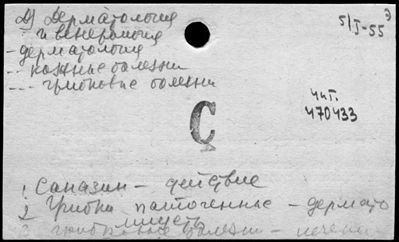 Д) Дерматология
и венерология
- дерматология
-- кожные болезни
--- грибковые болезни
5/I-55
Э
чит.
470433
С
1 Саназин - действие
2 Грибки патогенные - дермато
3 грибковые болезни - лечени